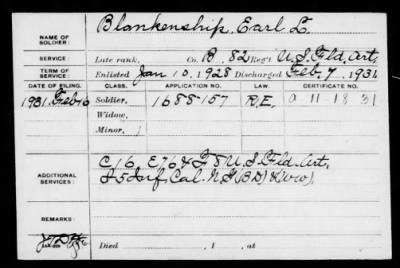 NAME OF SOLDIER: Blankenship, Earl L.
SERVICE Late rank, Co. B, 82 Reg't U.S. Fld. Art,
TERM OF SERVICE Enlisted Jan 10, 1928 Discharged Feb, 7, 1931
DATE OF FILING. CLASS. APPLICATION NO. LAW. CERTIFICATE NO.
1931. Feb 16 Soldier, 1688-157 R.E. a 11-18 31
Widow,
Minor,
ADDITIONAL SERVICES: C 16, E 76 & F 8 U.S. Fld. Art,
I 5 Inf, Cal. N.G. (B.D.) & (W.W.).
REMARKS:
Died , 1 , at